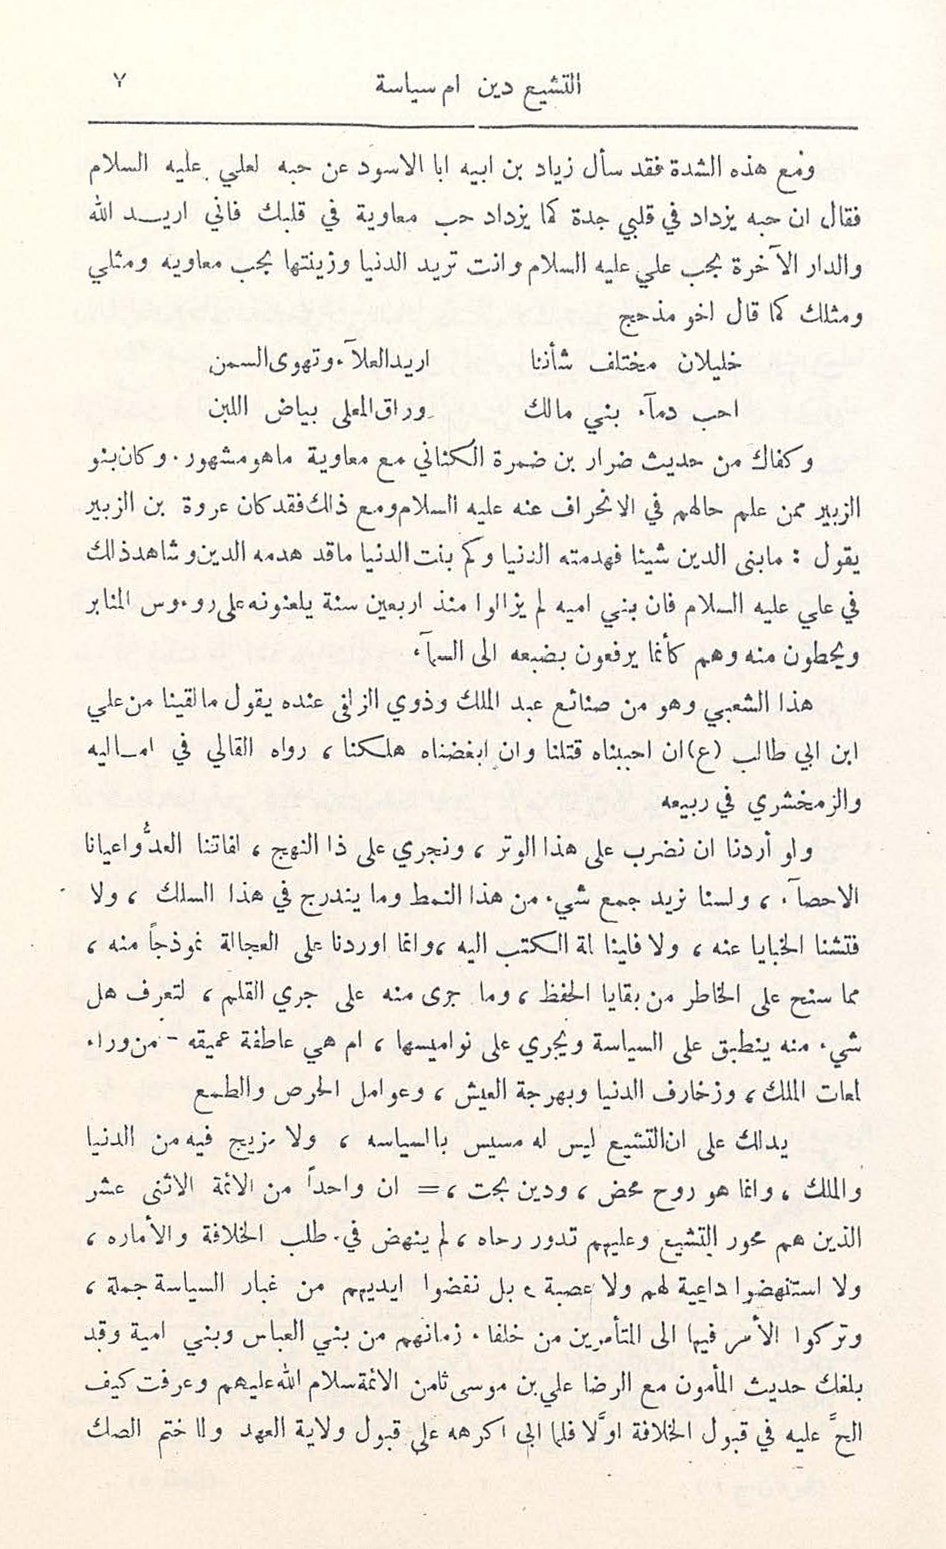 التشيع دين ام سياسة ٧
ومع هذه الشدة فقد سأل زياد بن ابيه ابا الاسود عن حبه لعلي عليه السلام
فقال ان حبه يزداد في قلبي جدة كما يزداد حب معاوية في قلبك فاني اريد الله
والدار الآخرة بحب علي عليه السلام وانت تريد الدنيا وزينتها بحب معاويه ومثلي
ومثلك كما قال اخو مذحج
خليلان مختلف شأننا اريد العلآء وتهوى السمن
احب دمآء بني مالك وراق المعلى بياض اللبن
وكفاك من حديث ضرار بن ضمرة الكناني مع معاوية ماهو مشهور . وكان بنو
الزبير ممن علم حالهم في الانحراف عنه عليه السلام ومع ذالك فقد كان عروة بن الزبير
يقول : مابنى الدين شيئا فهدمته الدنيا وكم بنت الدنيا ماقد هدمه الدين وشاهد ذلك
في علي عليه السلام فان بني اميه لم يزالوا منذ اربعين سنة يلعنونه على روءوس المنابر
ويحطون منه وهم كأنما يرفعون بضبعه الى السمآء
هذا الشعبي وهو من صنائع عبد الملك وذوي الزلفى عنده يقول مالقينا من علي
ابن ابي طالب (ع) ان احببناه قتلنا وان ابغضناه هلكنا ، رواه القالي في امـاليه
والزمخشري في ربيعه
ولو أردنا ان نضرب على هذا الوتر ، ونجري على ذا النهج ، لفاتنا العدُّ واعيانا
الاحصآء ، ولسنا نريد جمع شيء من هذا النمط وما يندرج في هذا السلك ، ولا
فتشنا الخبايا عنه ، ولا فلينا لمة الكتب اليه ، وانما اوردنا على العجالة نموذجاً منه ،
مما سنح على الخاطر من بقايا الحفظ ، وما جرى منه على جري القلم ، لتعرف هل
شيء منه ينطبق على السياسة ويجري على نواميسها ، ام هي عاطفة عميقه - من وراء
لمعات الملك ، وزخارف الدنيا وبهرجة العيش ، وعوامل الحرص والطمع
يدلك على ان التشيع ليس له مسيس بالسياسه ، ولا مزيج فيه من الدنيا
والملك ، وانما هو روح محض ، ودين بحت ، = ان واحداً من الائمة الاثنى عشر
الذين هم محور التشيع وعليهم تدور رحاه ، لم ينهض في طلب الخلافة والأماره ،
ولا استنهضوا داعية لهم ولا عصبة ، بل نفضوا ايديهم من غبار السياسة جملة ،
وتركوا الأمر فيها الى المتأمرين من خلفاء زمانهم من بني العباس وبني امية وقد
بلغك حديث المأمون مع الرضا علي بن موسى ثامن الائمة سلام الله عليهم وعرفت كيف
الحَّ عليه في قبول الخلافة اوَّلا فلما ابى اكرهه على قبول ولاية العهد ولما ختم الصك